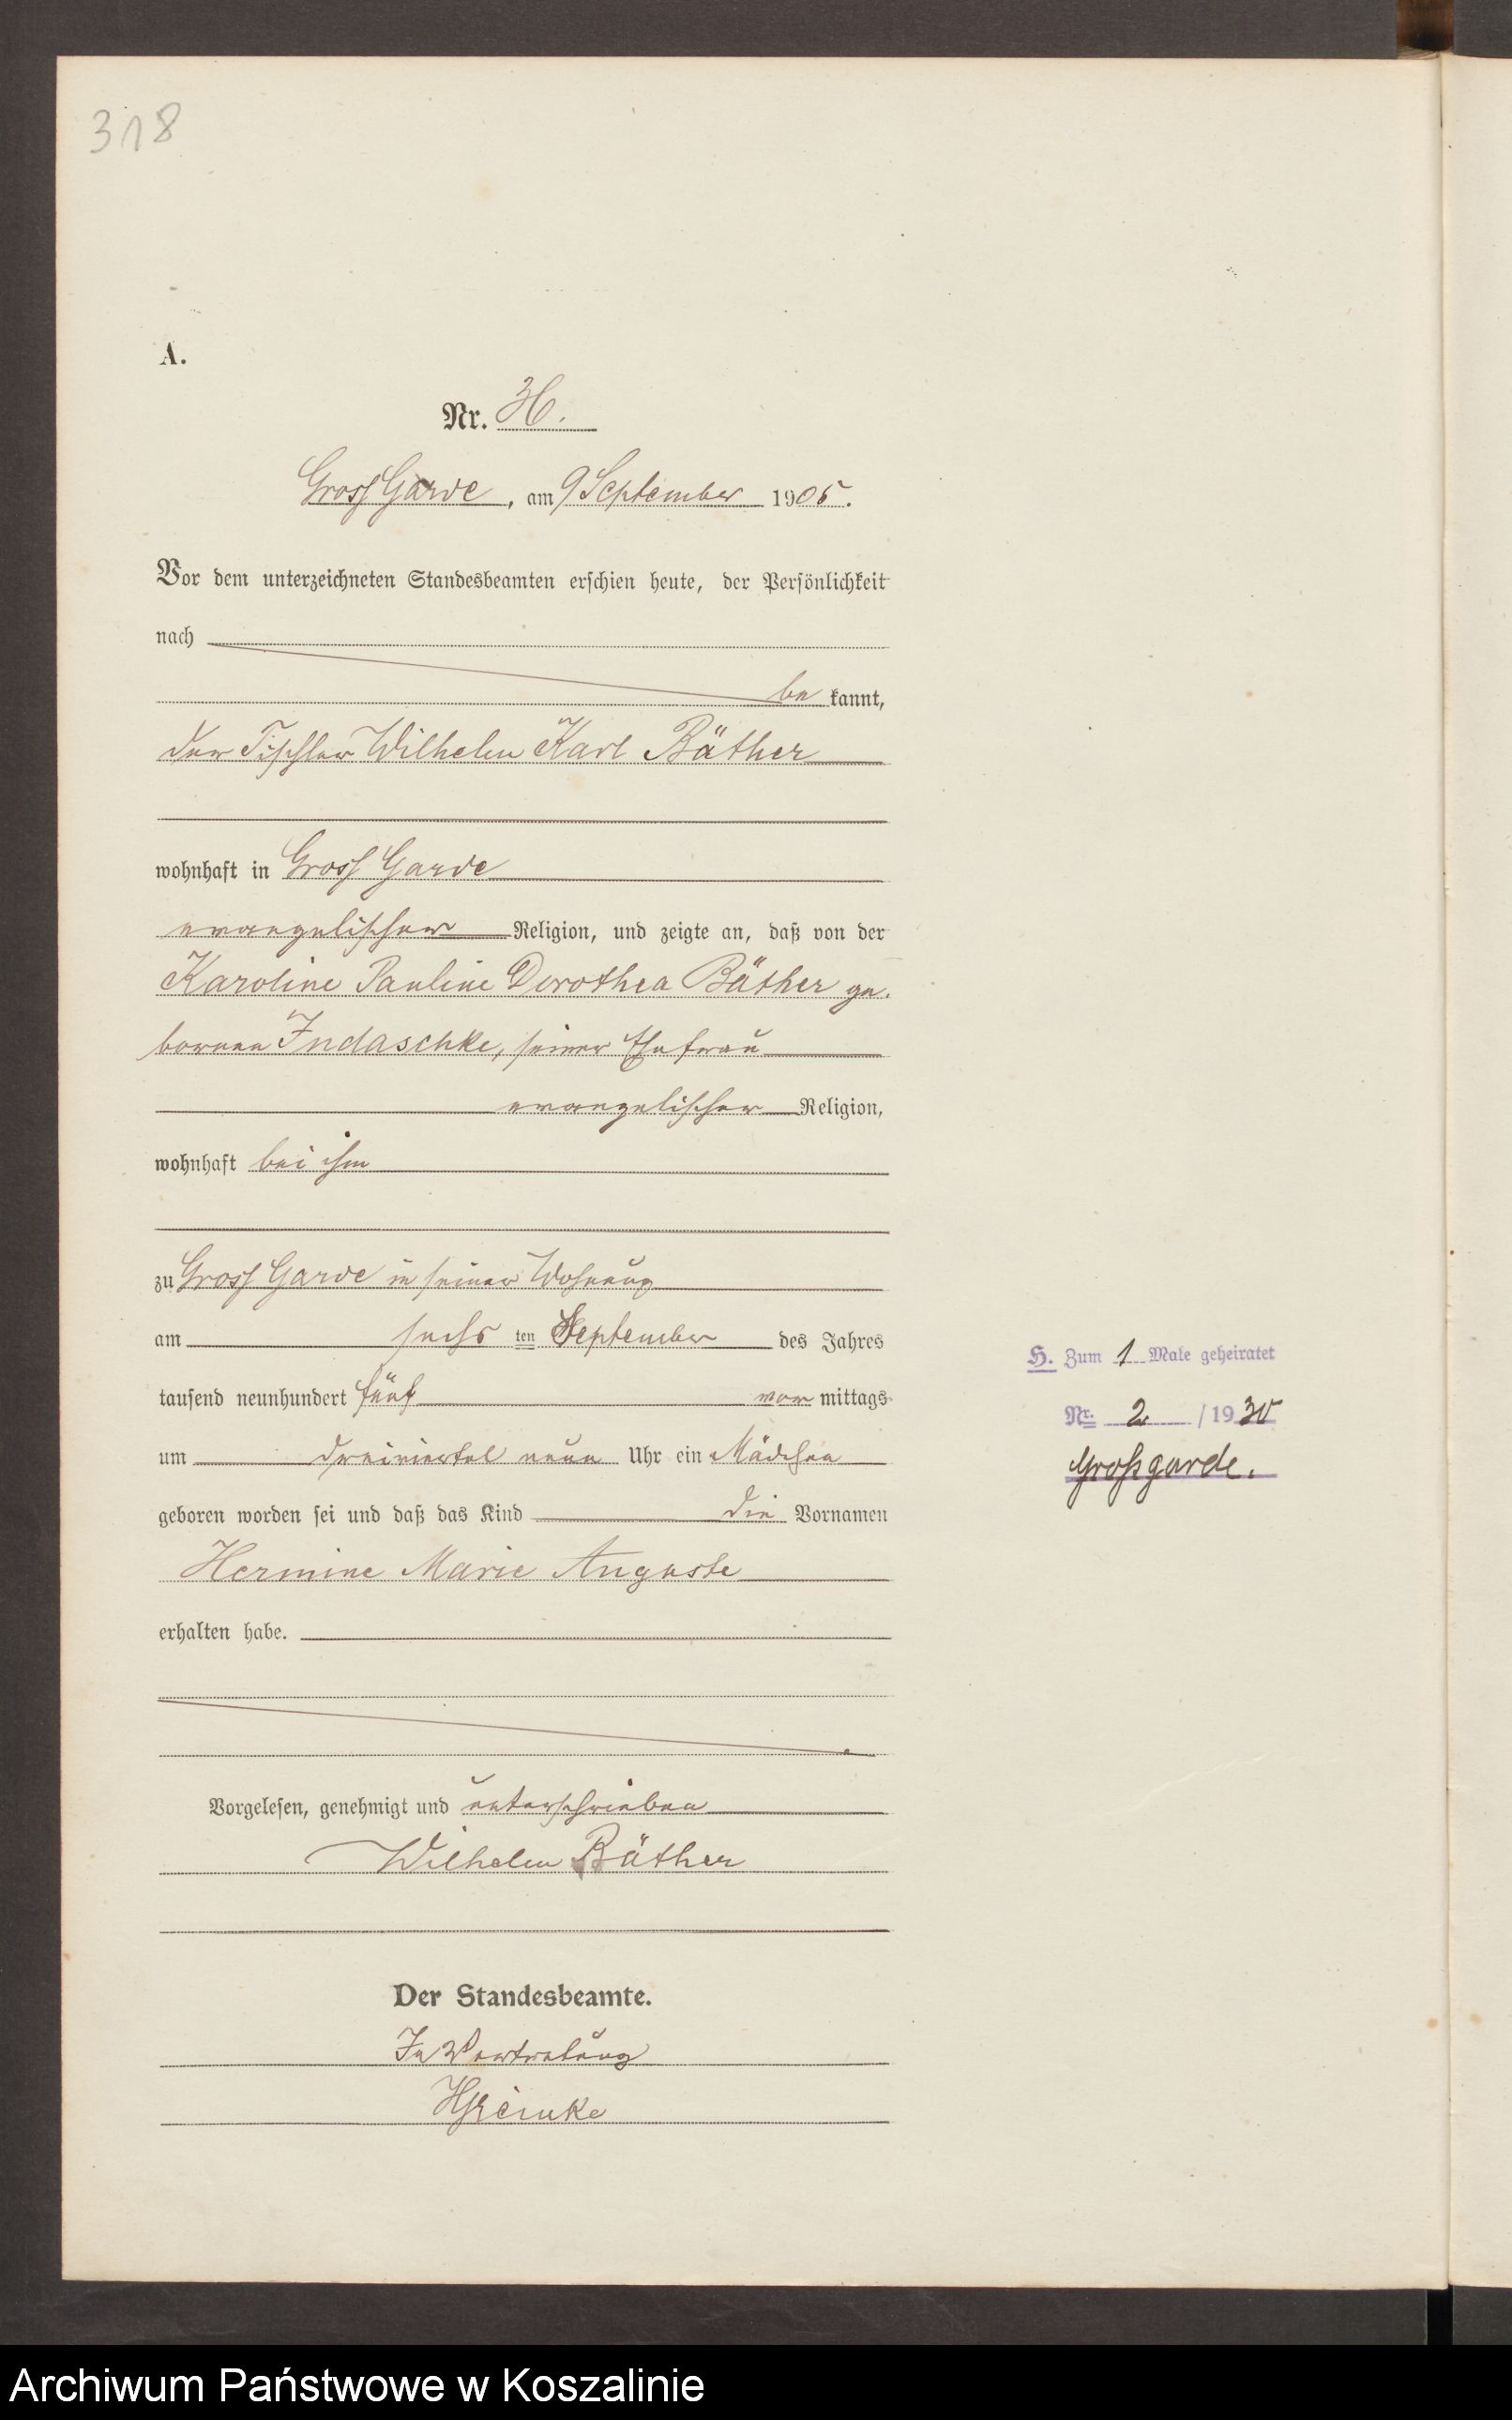 318
A.
Nr. 36.
Gross Garde, am 9 September 1905.
Vor dem unterzeichneten Standesbeamten erschien heute, der Persönlichkeit
nach
be kannt,
der Tischler Wilhelm Karl Bäther
wohnhaft in Gross Garde
evangelischer Religion, und zeigte an, daß von der
Karoline Pauline Dorothea Bäther ge.
borenen Indaschke, seiner Ehefrau
evangelischer Religion,
wohnhaft bei ihm
zu Gross Garde in seiner Wohnung
am sechs ten September des Jahres
tausend neunhundert fünf vor mittags
um dreiviertel neun Uhr ein Mädchen
geboren worden sei und daß das Kind die Vornamen
Hermine Marie Auguste
erhalten habe.
Vorgelesen, genehmigt und unterschrieben
Wilhelm Bäther
Der Standesbeamte.
In Vertretung
H. Zum 1 Male geheiratet
Nr. 2 / 1930
Großgarde.
Archiwum Państwowe w Koszalinie